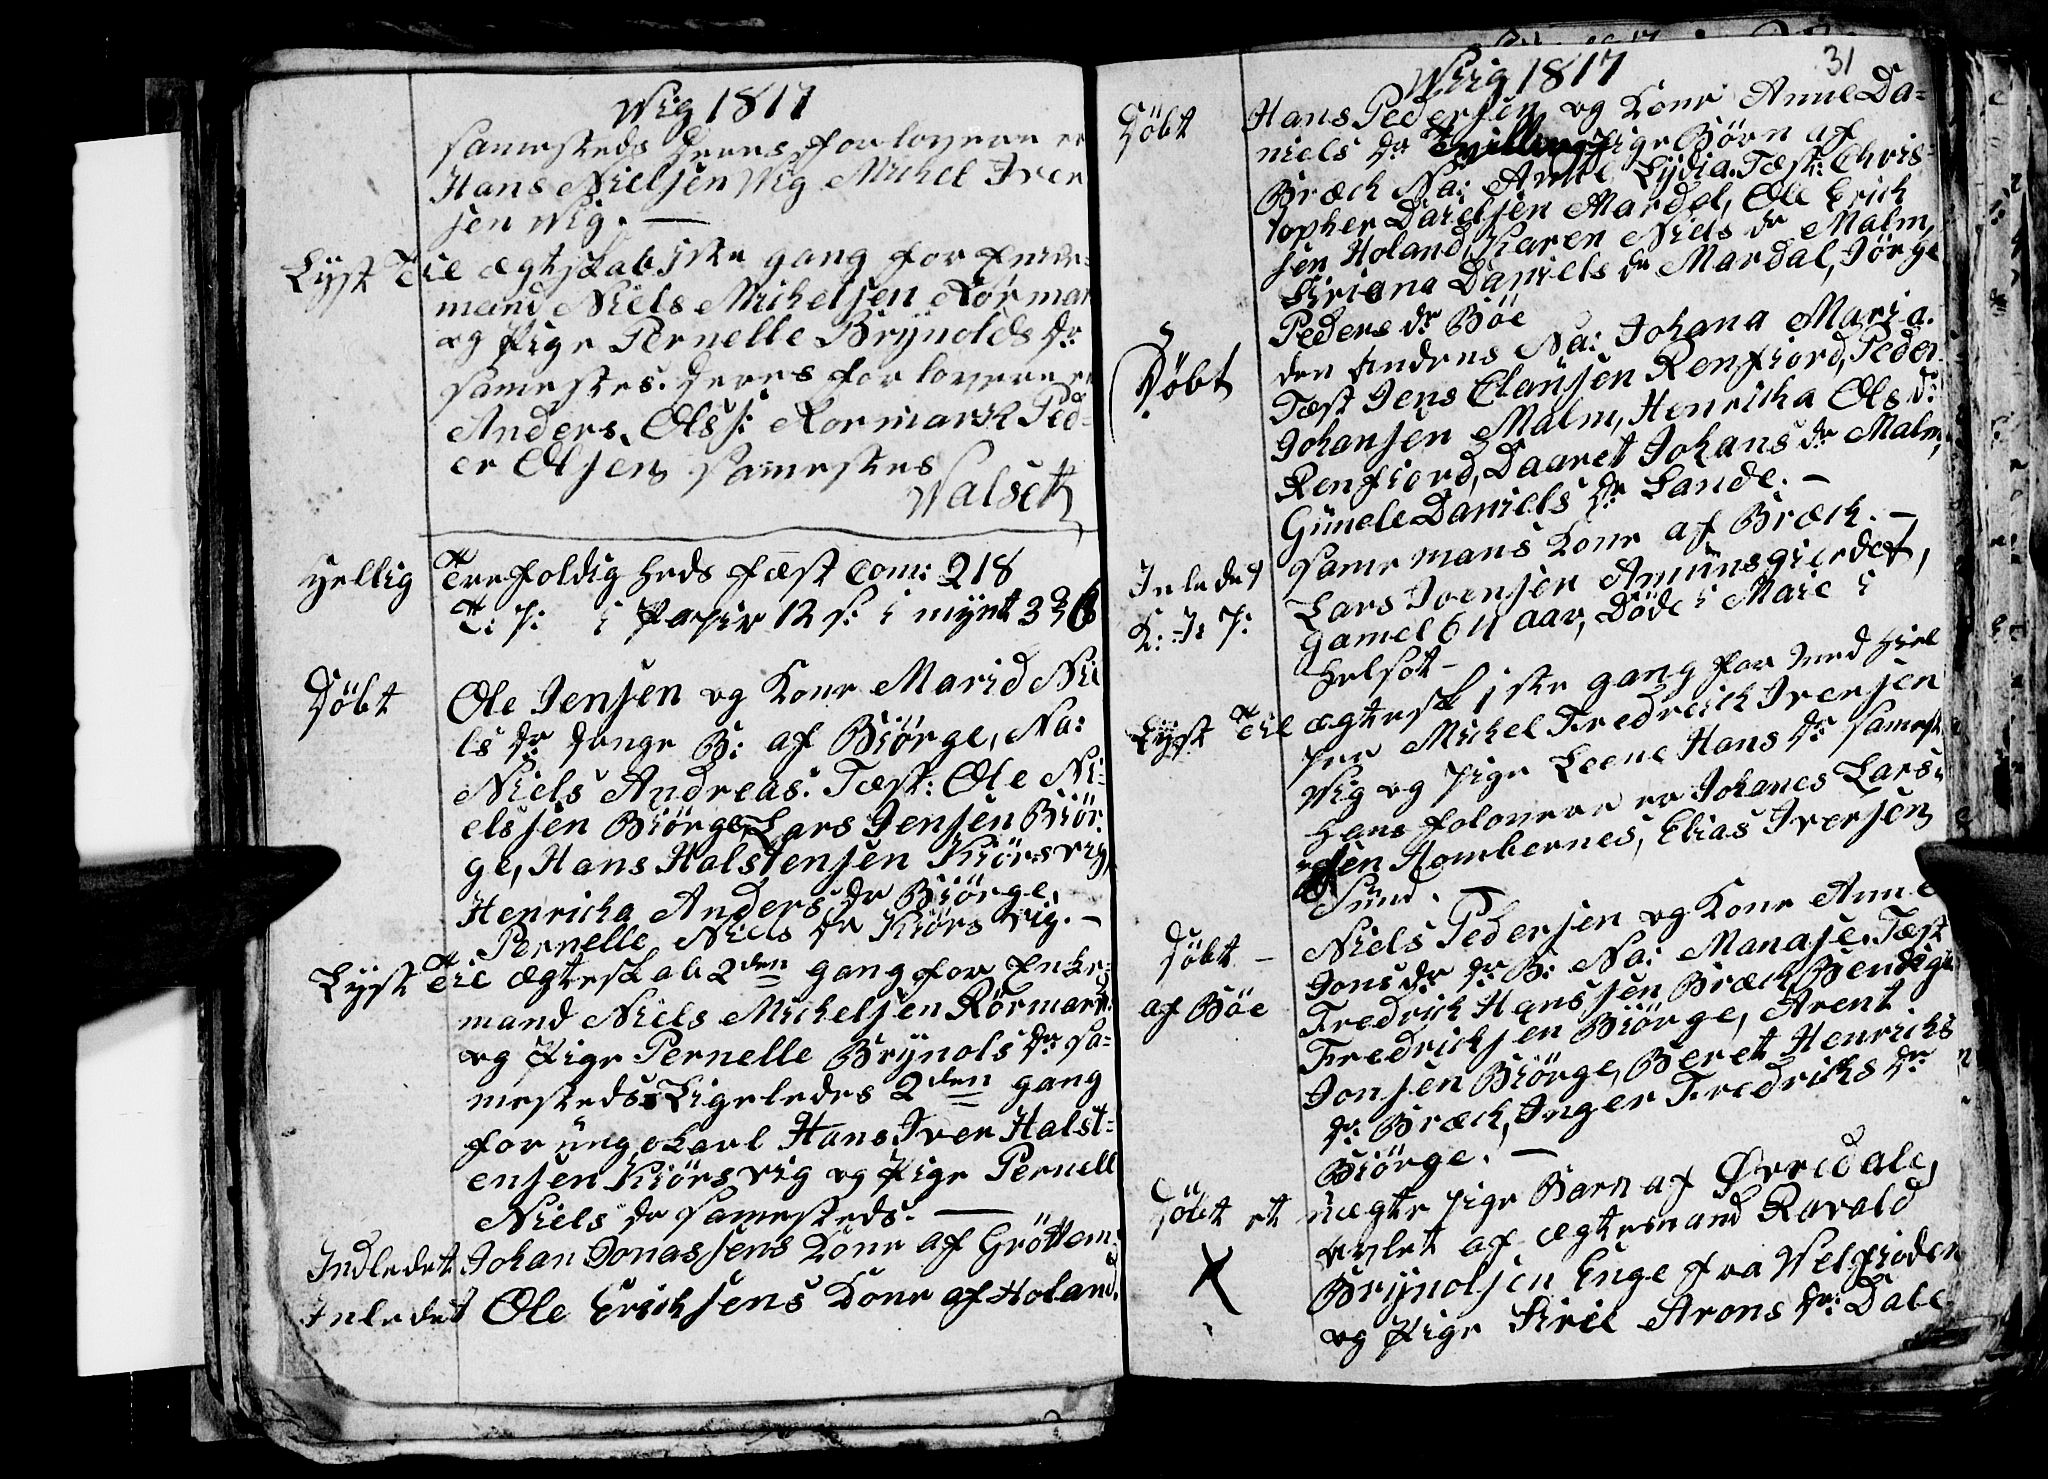 Wig 1817
samesteds deres forlovere er
Hans Nielsen Wig Michel Iver
sen Wig. —
Lyst Til ægtskab 1ste gang for Enke-
mand Niels Michelsen Rörmar
og Pige Pernelle Brÿnolds dr
samestes. deres forlovere er
Anders Ols s: Rormark Ped-
er Olsen samestes
Walseth
Hellig Trefoldigheds fæst Com: 218
T. P: i Papir 12 s: i mÿnt
Döbt Ole Jensen og Kone Marid Nie
ls dr drenge B: af Biörge, Na:
Niels Andreas. Tæst: Ole Ni-
elssen Biörge, Lars Jensen Biör-
ge, Hans Halstensen Kiörsvig,
Henricha Anders dr Biörge,
Pernelle Niels dr Kiörsvig. —
Lyst Til Ægteskab 2den gang for Enke-
mand Niels Michelsen Rörmark
og Pige Pernelle Brÿnols dr sa-
mesteds Ligeledes 2den gang
for unge karl Hans Iver Halst-
ensen Kiörsvig og Pige Pernell
Niels dr samesteds. —
Indledet Johan Jonassens Kone af Gröttem
Inledet Ole Erichsens Kone af Holand.
31
Wiig 1817
Döbt Hans Pedersen og Kone Anne Da-
niels dr Tvilling Pige Börn af
Bræck Na: Anne Lydia. Tæst: Chris-
topher Danielsen Mardal, Ole Erich
sen Holand, Karen Niels dr Malm,
Siriana Daniels dr Mardal, Jörge
Peders dr Böe
Döbt den Andens Na: Johana Maria.
Tæst Jens Clausen Renfiord, Peder
Johansen Malm, Henricka Ols d:
Renfiord, Daaret Johans dr Malm,
Gunele Daniels dr Lande. —
Inledet samemans Kone af Bræck. —
K: J: P: Lars Ivensen Amunsgierdet,
Gamel 64 aar, Döde i Maie i
helsot —
Lyst Til ægtesk 1ste gang for
Michel Fredrick Iversen
Wig og Pige Leene Hans dr samest
hans folovere er Johanes Lars-
sen Hombernes, Elias Iversen
Sund. —
Döbt — Niels Pedersen og Kone Anne
af Böe Jons dr dr B: Na: Manase. Tæst
Fredrick Hanssen Bræck Bendigt
Fredricksen Biörge, Arent
Jonsen Biörge, Beret Henricks
dr Bræck, Inger Fredricks dr
Biörge. —
Döbt et uægte Pige Barn af Øvredale,
avlet af ægtemand Ravald
X Brÿnolsen Enge fra Welfioden
og Pige Siril Arons dr: Dale